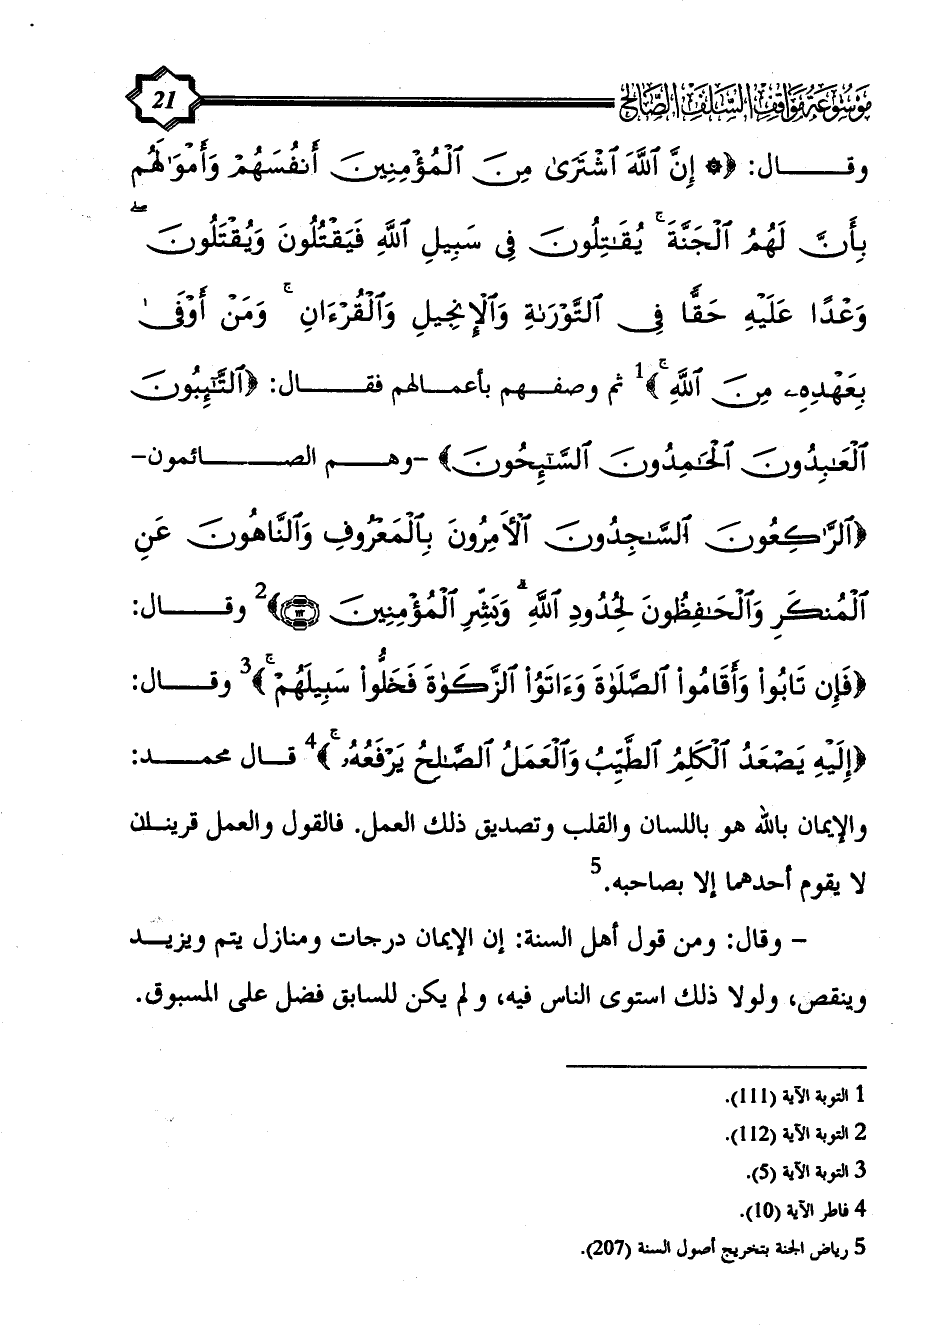 موسوعة مواقف السلف الصالح
21
وقـــال: ﴿۞ إِنَّ ٱللَّهَ ٱشْتَرَىٰ مِنَ ٱلْمُؤْمِنِينَ أَنفُسَهُمْ وَأَمْوَٰلَهُم
بِأَنَّ لَهُمُ ٱلْجَنَّةَ ۚ يُقَـٰتِلُونَ فِى سَبِيلِ ٱللَّهِ فَيَقْتُلُونَ وَيُقْتَلُونَ ۖ
وَعْدًا عَلَيْهِ حَقًّا فِى ٱلتَّوْرَىٰةِ وَٱلْإِنجِيلِ وَٱلْقُرْءَانِ ۚ وَمَنْ أَوْفَىٰ
بِعَهْدِهِۦ مِنَ ٱللَّهِ ۚ﴾1 ثم وصفـهم بأعمـالهم فقـــال: ﴿ٱلتَّـٰٓئِبُونَ
ٱلْعَـٰبِدُونَ ٱلْحَـٰمِدُونَ ٱلسَّـٰٓئِحُونَ﴾ -وهـــم الصـــائمون-
﴿ٱلرَّٰكِعُونَ ٱلسَّـٰجِدُونَ ٱلْأَمِرُونَ بِٱلْمَعْرُوفِ وَٱلنَّاهُونَ عَنِ
ٱلْمُنكَرِ وَٱلْحَـٰفِظُونَ لِحُدُودِ ٱللَّهِ ۗ وَبَشِّرِ ٱلْمُؤْمِنِينَ ۝١١٢﴾2 وقـــال:
﴿فَإِن تَابُوا۟ وَأَقَامُوا۟ ٱلصَّلَوٰةَ وَءَاتَوُا۟ ٱلزَّكَوٰةَ فَخَلُّوا۟ سَبِيلَهُمْ ۚ﴾3 وقـــال:
﴿إِلَيْهِ يَصْعَدُ ٱلْكَلِمُ ٱلطَّيِّبُ وَٱلْعَمَلُ ٱلصَّـٰلِحُ يَرْفَعُهُۥ ۚ﴾4 قـال محمـــد:
والإيمان بالله هو باللسان والقلب وتصديق ذلك العمل. فالقول والعمل قرينـان
لا يقوم أحدهما إلا بصاحبه.5
– وقال: ومن قول أهل السنة: إن الإيمان درجات ومنازل يتم ويزيـــد
وينقص، ولولا ذلك استوى الناس فيه، ولم يكن للسابق فضل على المسبوق.
1 التوبة الآية (111).
2 التوبة الآية (112).
3 التوبة الآية (5).
4 فاطر الآية (10).
5 رياض الجنة بتخريج أصول السنة (207).